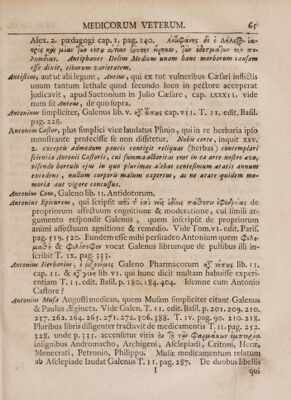 MEDICORUM VETERUM. 65
Alex. 2. pædagogi cap. 1. pag. 140.
Antiphanes Delius Medicus unam hanc morborum causam
esse dixit, ciborum varietatem.
Antistius, aut ut alii legunt, Antius, qui ex tot vulneribus Cæsari inflictis
unum tantum lethale quod secundo loco in pectore acceperat
judicavit, apud Suetonium in Julio Cæsare, cap. LXXXII. vide
num sit Anteus, de quo supra.
Antonius simpliciter, Galenus lib. v. cap. VII. T. II. edit. Basil.
pag. 228.
Antonius Castor, plus simplici vice laudatus Plinio, qui in re herbaria ipso
monstrante profecisse se non diffitetur. Nobis certe, inquit XXV.
2. exceptis admodum paucis contigit reliquas (herbas) contemplari
scientia Antonii Castoris, cui summa auctoritas erat in ea arte nostro ævo,
visendo hortulo ejus in quo plurimas alebat centesimum ætatis annum
excedens, nullum corporis malum expertus, ac ne ætate quidem me-
moria aut vigore concussis.
Antonius Cous, Galeno lib. II. Antidotorum.
Antonius Epicureus, qui scripsit de
propriorum affectuum cognitione & moderatione, cui simili ar-
gumento respondit Galenus, quem inscripsit de propriorum
animi affectuum agnitione & remedio. Vide Tom. VI. edit. Paris.
pag. 519. 520. Eundem esse mihi persuadeo Antonium quem
vocat Galenus librumque de pulsibus illi in-
scribit T. IX. pag. 333.
Antonius Herbarius, Galeno Pharmacorum lib. II.
cap. II. & lib VI. qui hunc dicit multam habuisse experi-
entiam T. II. edit. Basil. p. 180. 184. 404. Idemne cum Antonio
Castore?
Antonius Musa Augusti medicus, quem Musam simpliciter citant Galenus
& Paulus Ægineta. Vide Galen. T. II. edit. Basil. p. 201. 209. 210.
257. 262. 264. 265. 271. 272. 306. 388. T. IV. pag. 90. 210. 218.
Pluribus libris diligenter tractavit de medicamentis T. II. pag. 252.
328. unde p. 335. accensetur viris
insignibus Andromacho, Archigeni, Asclepiadi, Critoni, Heræ,
Menecrati, Petronio, Philippo. Musæ medicamentum relatum
ab Asclepiade laudat Galenus T. II. pag. 287. De duobus libellis
I qui